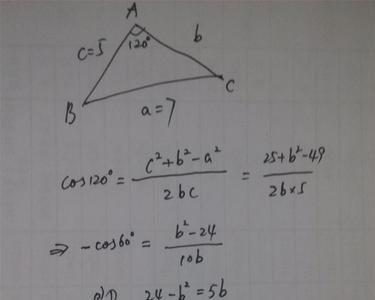 A
c=5 120° b
B C
a=7
cos120° = (c²+b²-a²)/(2bc) = (25+b²-49)/(2b×5)
⇒ -cos60° = (b²-24)/(10b)
即 24-b²=5b